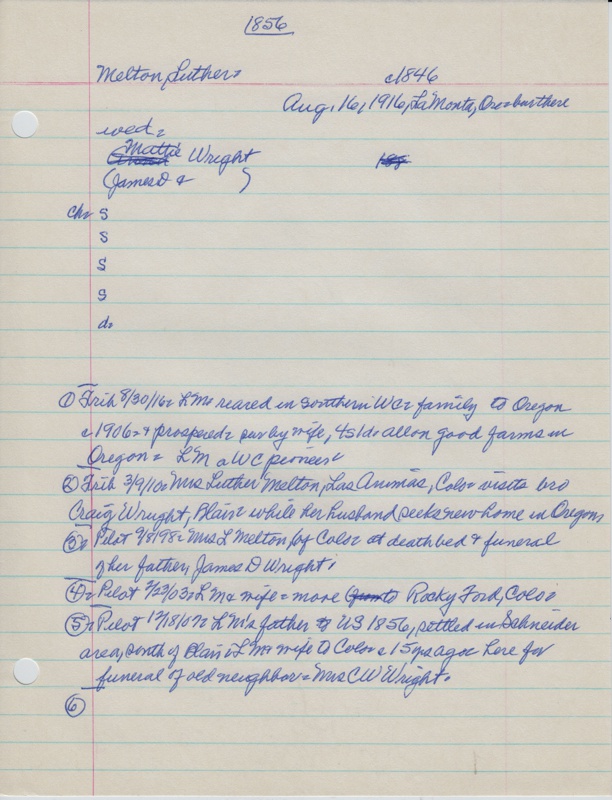 1856
Melton, Luther= c1846
Aug, 16, 1916, LaMonta, Ore= bur there
wed=
Mattie Wright
(James D & )
ch= S
S
S
S
d=
① Trib 8/30/16= LM= reared in southern WC= family to Oregon
c1906= & prospered= sur by wife, 4s1d= all on good farms in
Oregon= LM a WC pioneer
② Trib 3/9/10= Mrs Luther Melton, Las Animas, Colo= visits bro
Craig Wright, Blair= while her husband seeks new home in Oregon
③= Pilot 9/8/98= Mrs L Melton of Colo= at deathbed & funeral
of her father, James D Wright.
④= Pilot /23/03= LM & wife= move Rocky Ford, Colo=
⑤= Pilot 12/18/07= LM's father to US 1856, settled in Schneider
area, south of Blair= LM & wife to Colo= c15 yrs ago= here for
funeral of old neighbor= Mrs CW Wright.
⑥